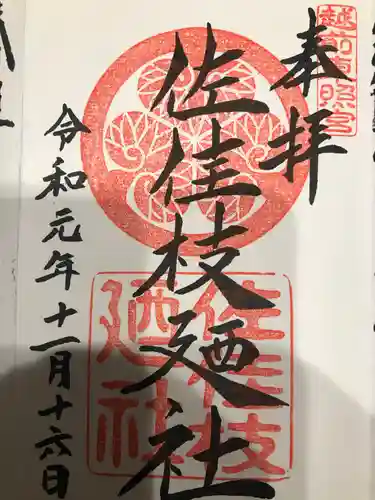 奉拝
越前東照宮
佐佳枝廼社
佐佳枝
廼社
令和元年十一月十六日